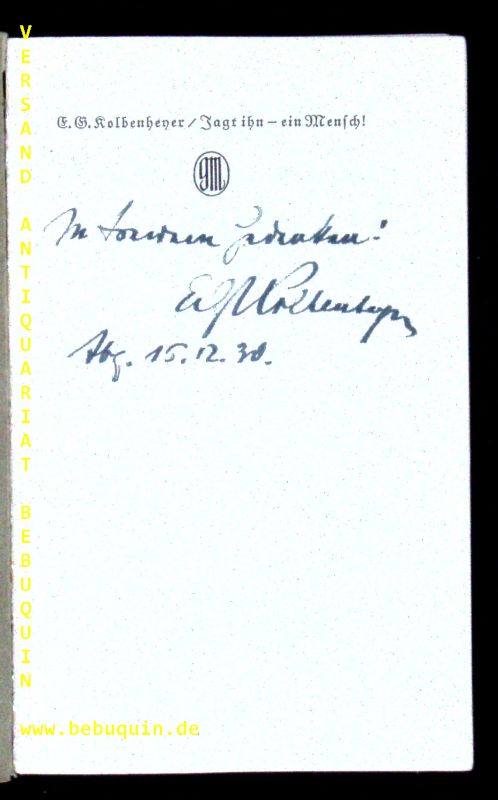 E. G. Kolbenheyer / Jagt ihn – ein Mensch!
GM
In Gedenken!
EGKolbenheyer
Abg. 15.12.38.
VERSAND ANTIQUARIAT BEBUQUIN
www.bebuquin.de